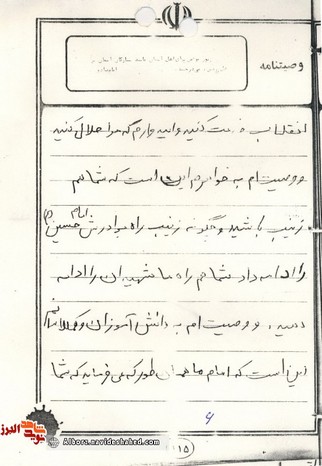 وصیتنامه
انقلاب خدمت کنید و امیدوارم که مرا حلال کنید
و وصیت ام به خواهرم این است که شما هم
زینب باشید و چگونه زینب راه برادرش امام حسین (ع)
را ادامه داد شما هم راه ما شهیدان را ادامه
دهید، و وصیت ام به دانش آموزان و
این است که امام ما همان طور که می فرماید که شما
۶
۱۵
Alborz.navideshahed.com